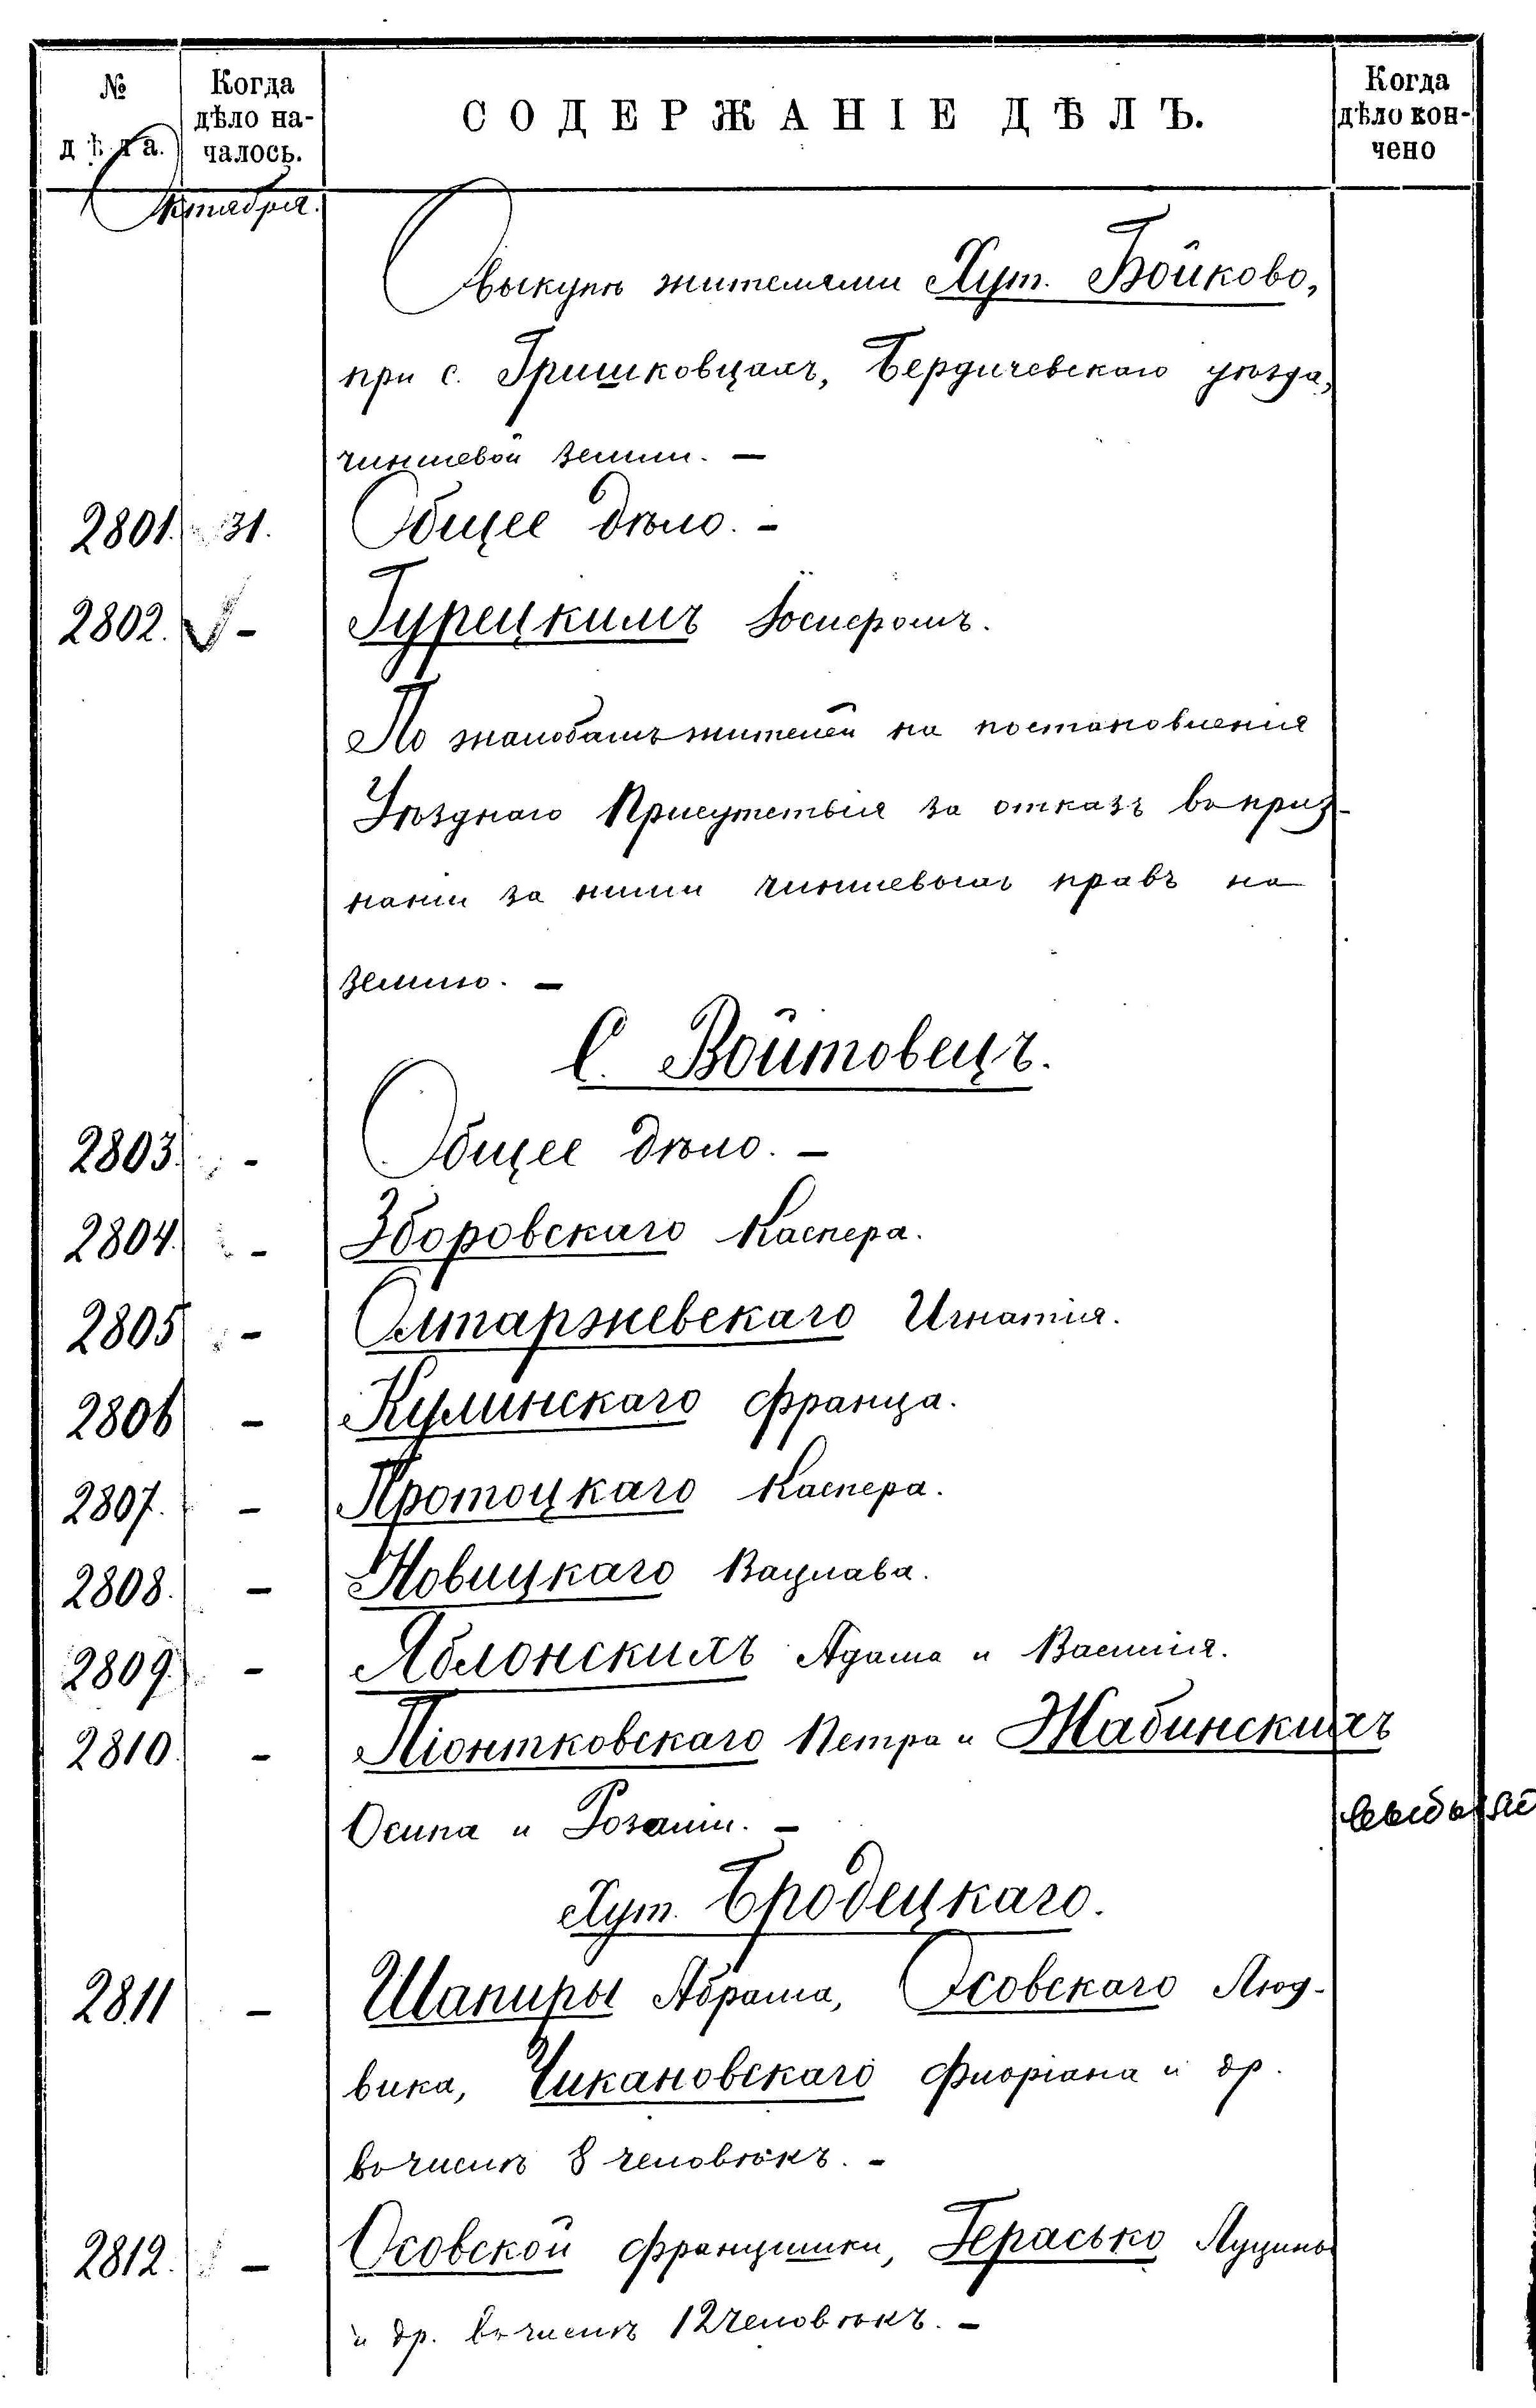 № дѣла.
Когда дѣло на-чалось.
СОДЕРЖАНІЕ ДѢЛЪ.
Когда дѣло кон-чено
Октября.
О выкупѣ жителями Хут. Бойково,
при с. Гришковцахъ, Бердичевскаго уѣзда,
чиншевой земли. —
2801. 31. Общее дѣло. —
2802. V - Гурецкимъ Іосифомъ.
По жалобамъ жителей на постановленія
Уѣзднаго Присутствія за отказъ въ приз-
наніи за ними чиншевыхъ правъ на
землю. —
С. Войтовецъ.
2803. - Общее дѣло. —
2804. - Зборовскаго Каспера.
2805 - Олтаржевскаго Игнатія.
2806 - Кулинскаго Франца.
2807. - Протоцкаго Каспера.
2808. - Новицкаго Вацлава.
2809. - Яблонскихъ Адама и Василія.
2810. - Піонтковскаго Петра и Жабинскихъ
Осипа и Розаліи. —
Хут. Бродецкаго.
2811 - Шапиры Абрама, Осовскаго Люд-
вика, Чикановскаго Флоріана и др.
въ числѣ 8 человѣкъ. —
2812. - Осовской Францишки, Герасько Луцины
и др. въ числѣ 12 человѣкъ. —